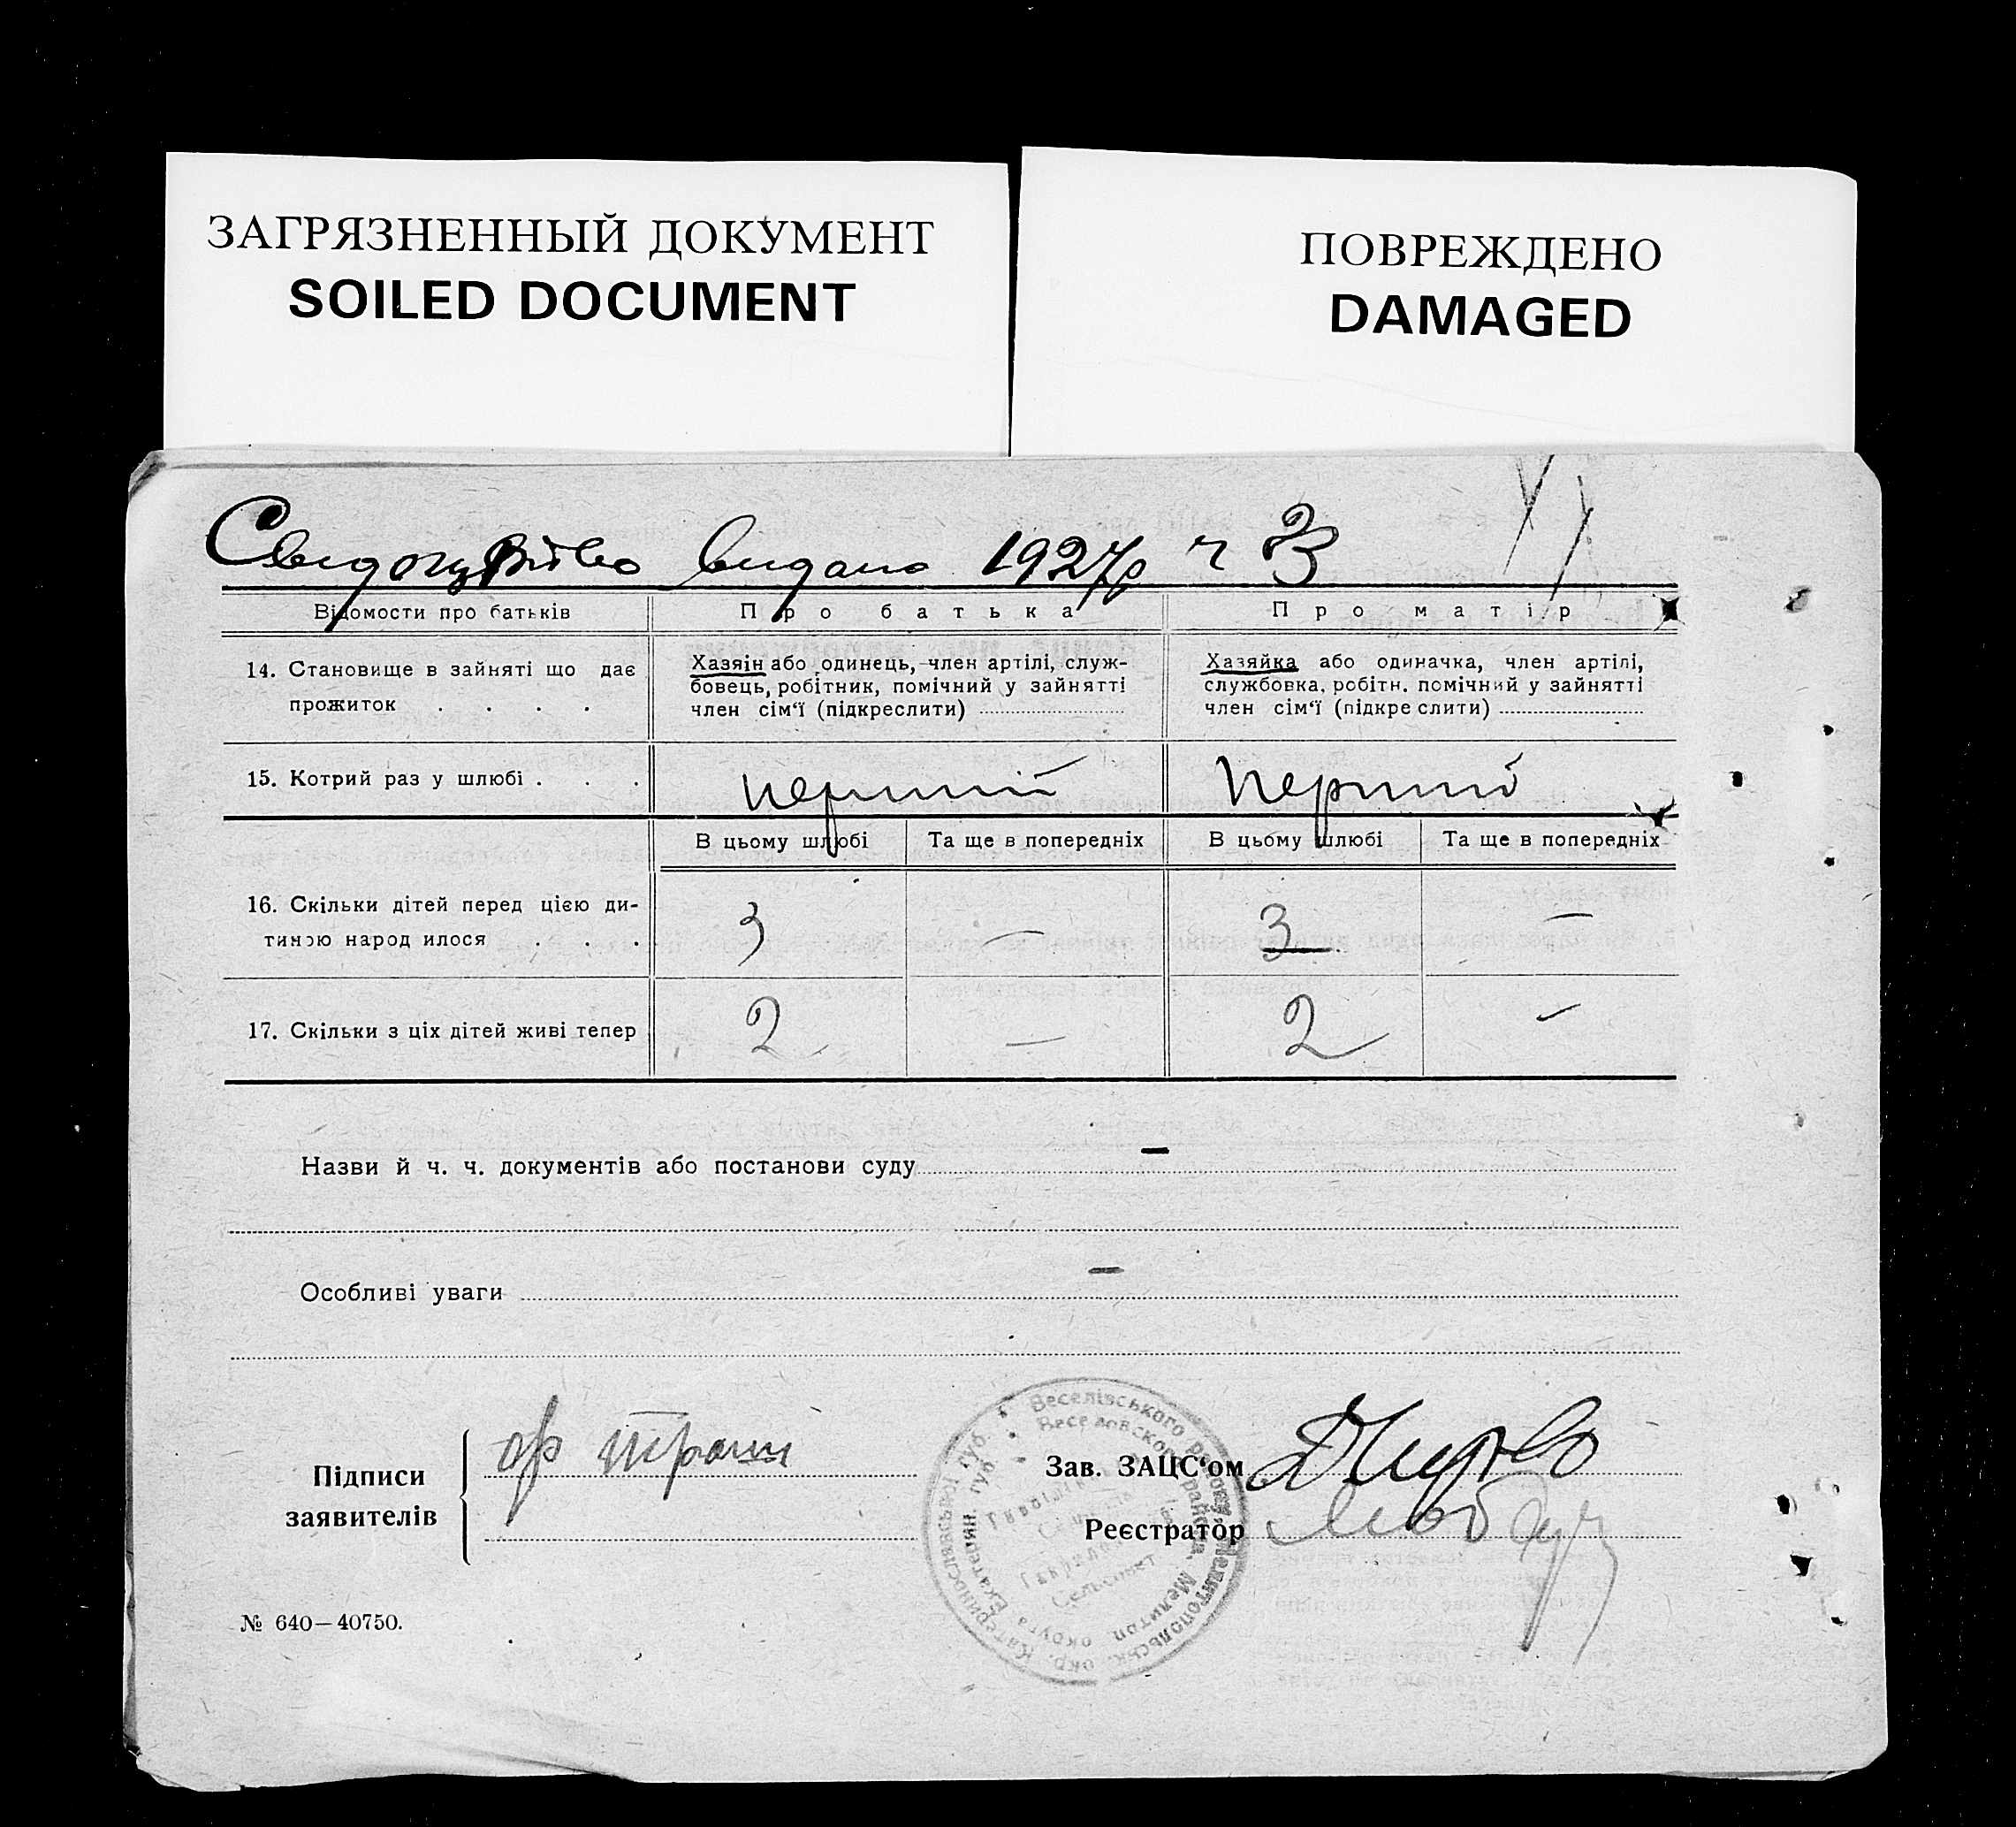 ЗАГРЯЗНЕННЫЙ ДОКУМЕНТ
SOILED DOCUMENT
ПОВРЕЖДЕНО
DAMAGED
видано 1927р ч
Відомости про батьків Про батька Про матір
14. Становище в зайняті що дає
прожиток . . . .
Хазяін або одинець, член артілі, служ-
бовець, робітник, помічний у зайнятті
член сім‘ї (підкреслити)
Хазяйка або одиначка, член артілі,
службовка, робітн. помічний у зайнятті
член сім‘ї (підкре слити)
15. Котрий раз у шлюбі . . . перший перший
В цьому шлюбі Та ще в попередніх В цьому шлюбі Та ще в попередніх
16. Скільки дітей перед цією ди-
тиною народ илося . . . 3 — 3 —
17. Скільки з ціх дітей живі тепер 2 — 2 —
Назви й ч. ч. документів або постанови суду —
Особливі уваги —
Підписи
заявителів
Зав. ЗАЦС‘ом
Реєстратор
Веселівського району, Мелитопольськ. окр. Катеринославської губ.
Веселовского района, Мелитоп. округа Екатерин. губ.
№ 640—40750.